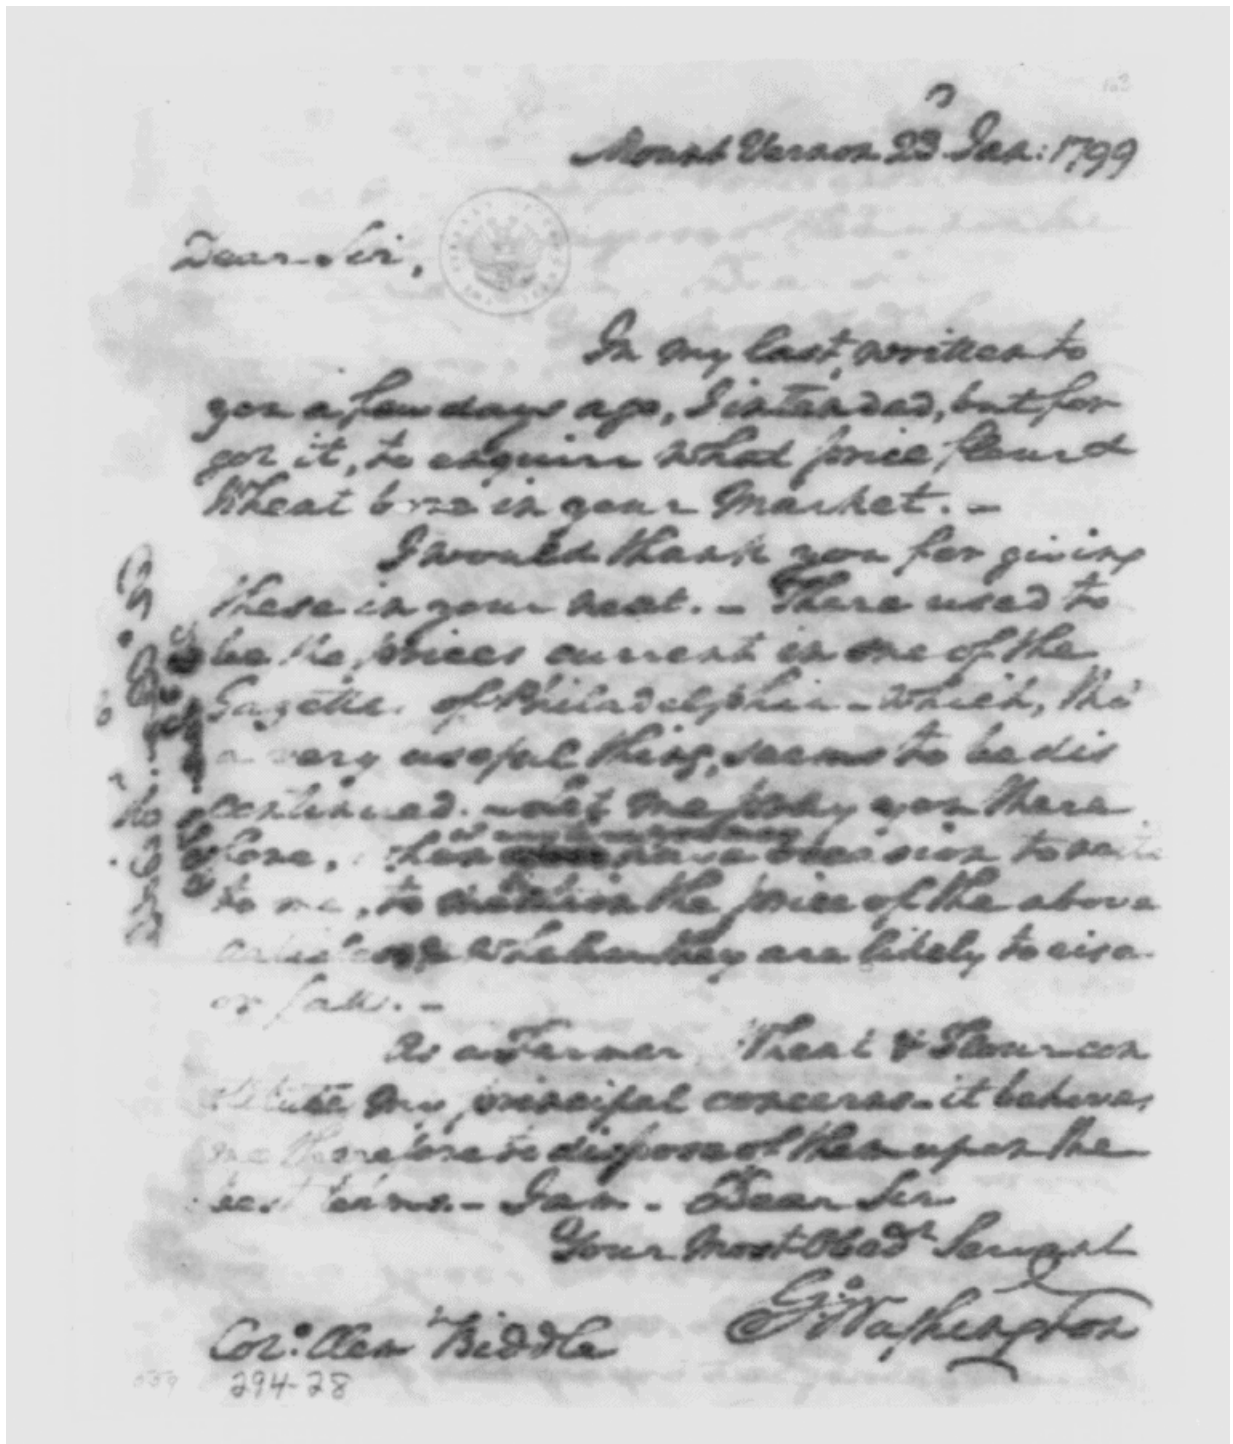 Mount Vernon 23 Jan: 1799
Dear Sir,
In my last, written to
you a few days ago, I intended, but for
got it, to enquire what price flour &
Wheat bore in your Market. –
I would thank you for giving
these in your next. – There used to
be the prices current in one of the
Gazettes of Philadelphia – which, tho'
a very useful thing, seems to be dis
continued. – Let me pray you there
fore, when have occasion to write
to me, to the price of the above
articles & whether they are likely to rise
or fall. –
As a Farmer, Wheat & Flour con
stitute my principal concerns – it behoves
me therefore to dispose of them upon the
best terms. – I am – Dear Sir
Your Most Obedt Servant
Go: Washington
Colo: Clemt Biddle
294-28